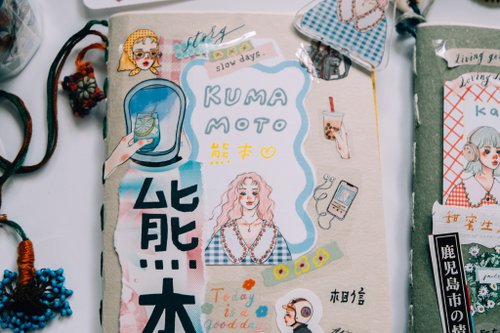 story
slow days.
KUMA
MOTO
熊本
熊本
相信
Today
is a
Good day
Living
Loving
Ka
甜蜜生
鹿児島市の情